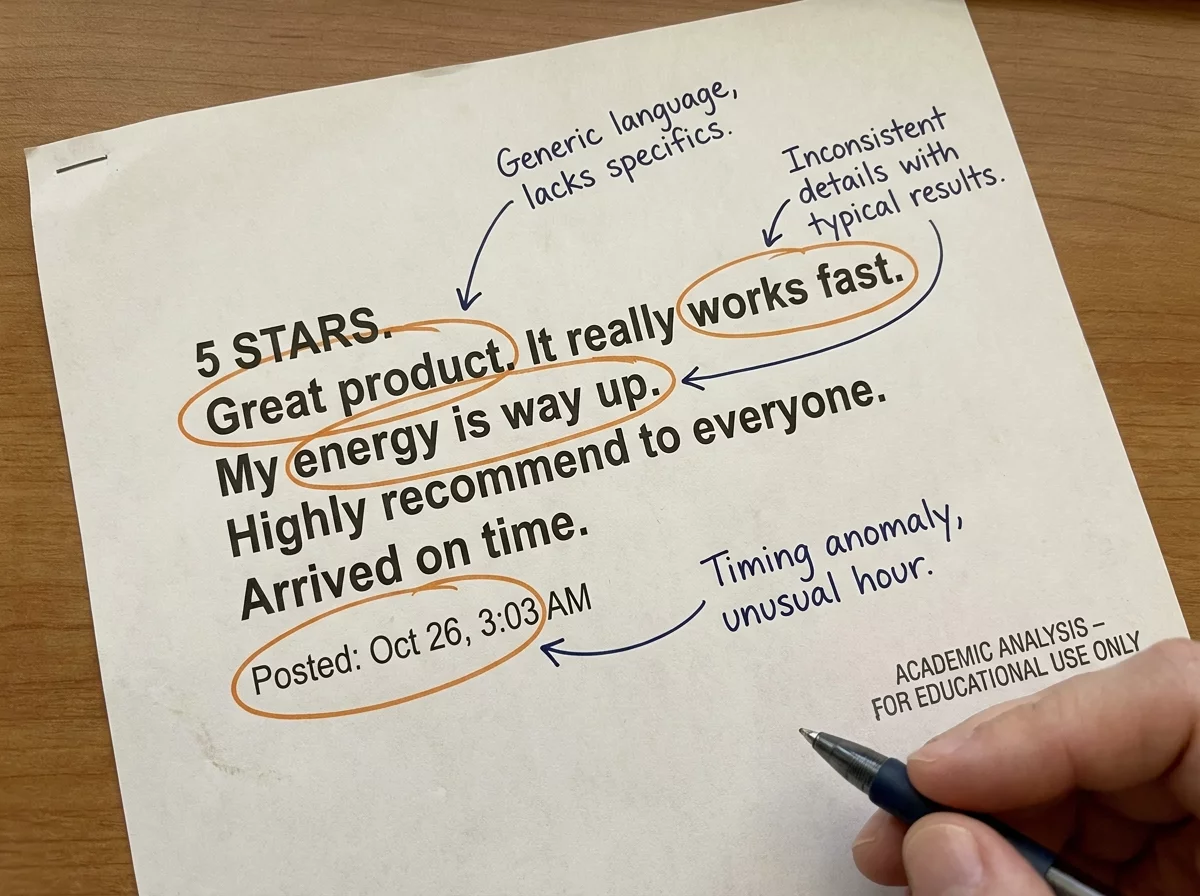 Generic language,
lacks specifics.
Inconsistent
details with
typical results.
5 STARS.
Great product. It really works fast.
My energy is way up.
Highly recommend to everyone.
Arrived on time.
Posted: Oct 26, 3:03 AM
Timing anomaly,
unusual hour.
ACADEMIC ANALYSIS –
FOR EDUCATIONAL USE ONLY